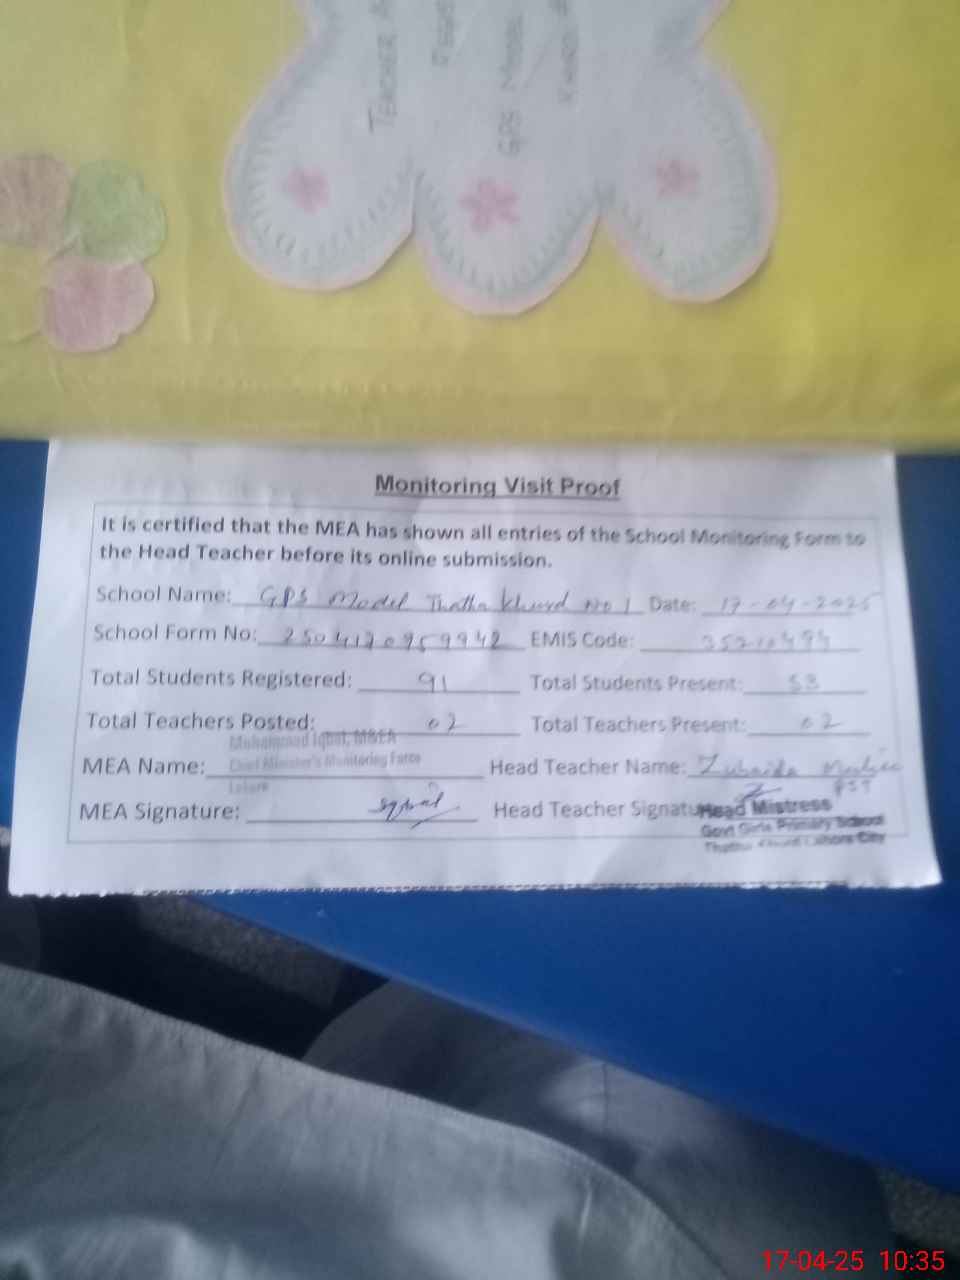 TEACHER
GPS Model
Monitoring Visit Proof
It is certified that the MEA has shown all entries of the School Monitoring Form to
the Head Teacher before its online submission.
School Name: GPS Model Thatha Khurd No 1 Date: 17-04-2025
School Form No: EMIS Code:
Total Students Registered: 91 Total Students Present: 53
Total Teachers Posted: 02 Total Teachers Present: 02
Muhammad Iqbal, M&EA
MEA Name: Chief Minister's Monitoring Force Head Teacher Name: Zubaida
Lahore PST
MEA Signature: Iqbal Head Teacher Signature Head Mistress
Govt Girls Primary School
Thatha Khurd Lahore City
17-04-25 10:35